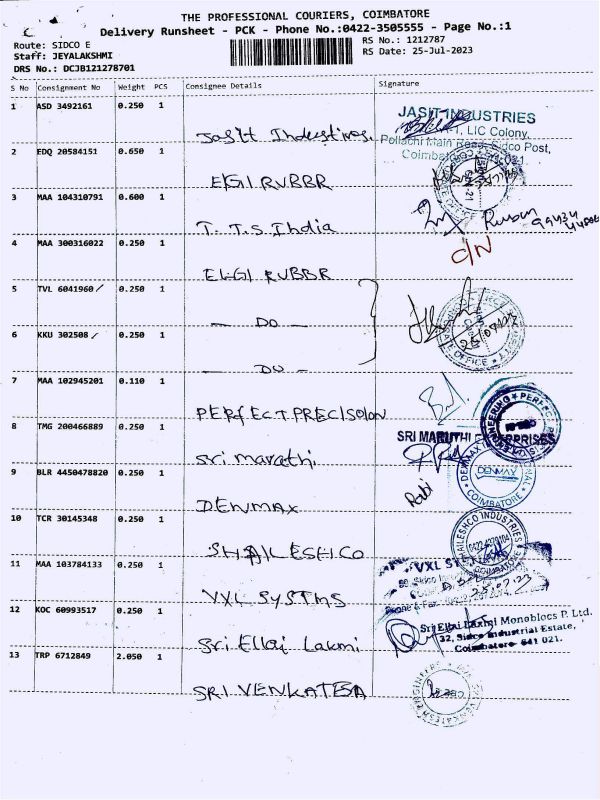 THE PROFESSIONAL COURIERS, COIMBATORE
Delivery Runsheet - PCK - Phone No.:0422-3505555 - Page No.:1
Route: SIDCO E
Staff: JEYALAKSHMI
DRS No.: DCJB121278701
RS No.: 1212787
RS Date: 25-Jul-2023
S No Consignment No Weight PCS Consignee Details Signature
1 ASD 3492161 0.250 1
Jasit Industries.
JASIT INDUSTRIES
LIC Colony,
Pollachi Main Road, Sidco Post,
2 EDQ 20584151 0.650 1
ELGI RUBBR
3 MAA 104310791 0.600 1
T.T.S India
C/N
4 MAA 300316022 0.250 1
ELGI RUBBR
5 TVL 6041960 / 0.250 1
— DO —
6 KKU 302508 / 0.250 1
DO —
7 MAA 102945201 0.110 1
PERFECT PRECISOLON
8 TMG 200466889 0.250 1
SRI MARUTHI
Sri marathi
9 BLR 4450478820 0.250 1
DENMAX
COIMBATORE
DENMAX
10 TCR 30145348 0.250 1
SHAILESHCO
11 MAA 103784133 0.250 1
VXL
25.07.23
VXL SYSTMS
12 KOC 60993517 0.250 1
Sri Ellai Laxmi Monoblocs P. Ltd.
32, Sidco Industrial Estate,
Coimbatore - 641 021.
Sri Ellai Lakmi
13 TRP 6712849 2.050 1
SRI VENKATESA